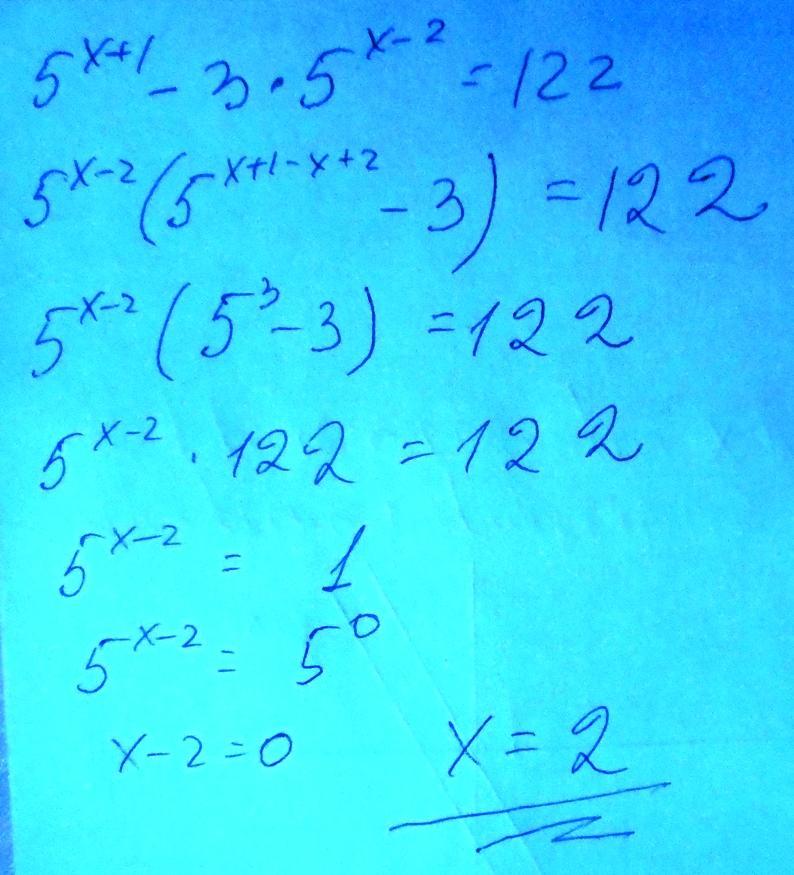 5^{x+1} - 3 · 5^{x-2} = 122
5^{x-2} (5^{x+1-x+2} - 3) = 122
5^{x-2} (5^3 - 3) = 122
5^{x-2} · 122 = 122
5^{x-2} = 1
5^{x-2} = 5^0
x-2=0 x=2